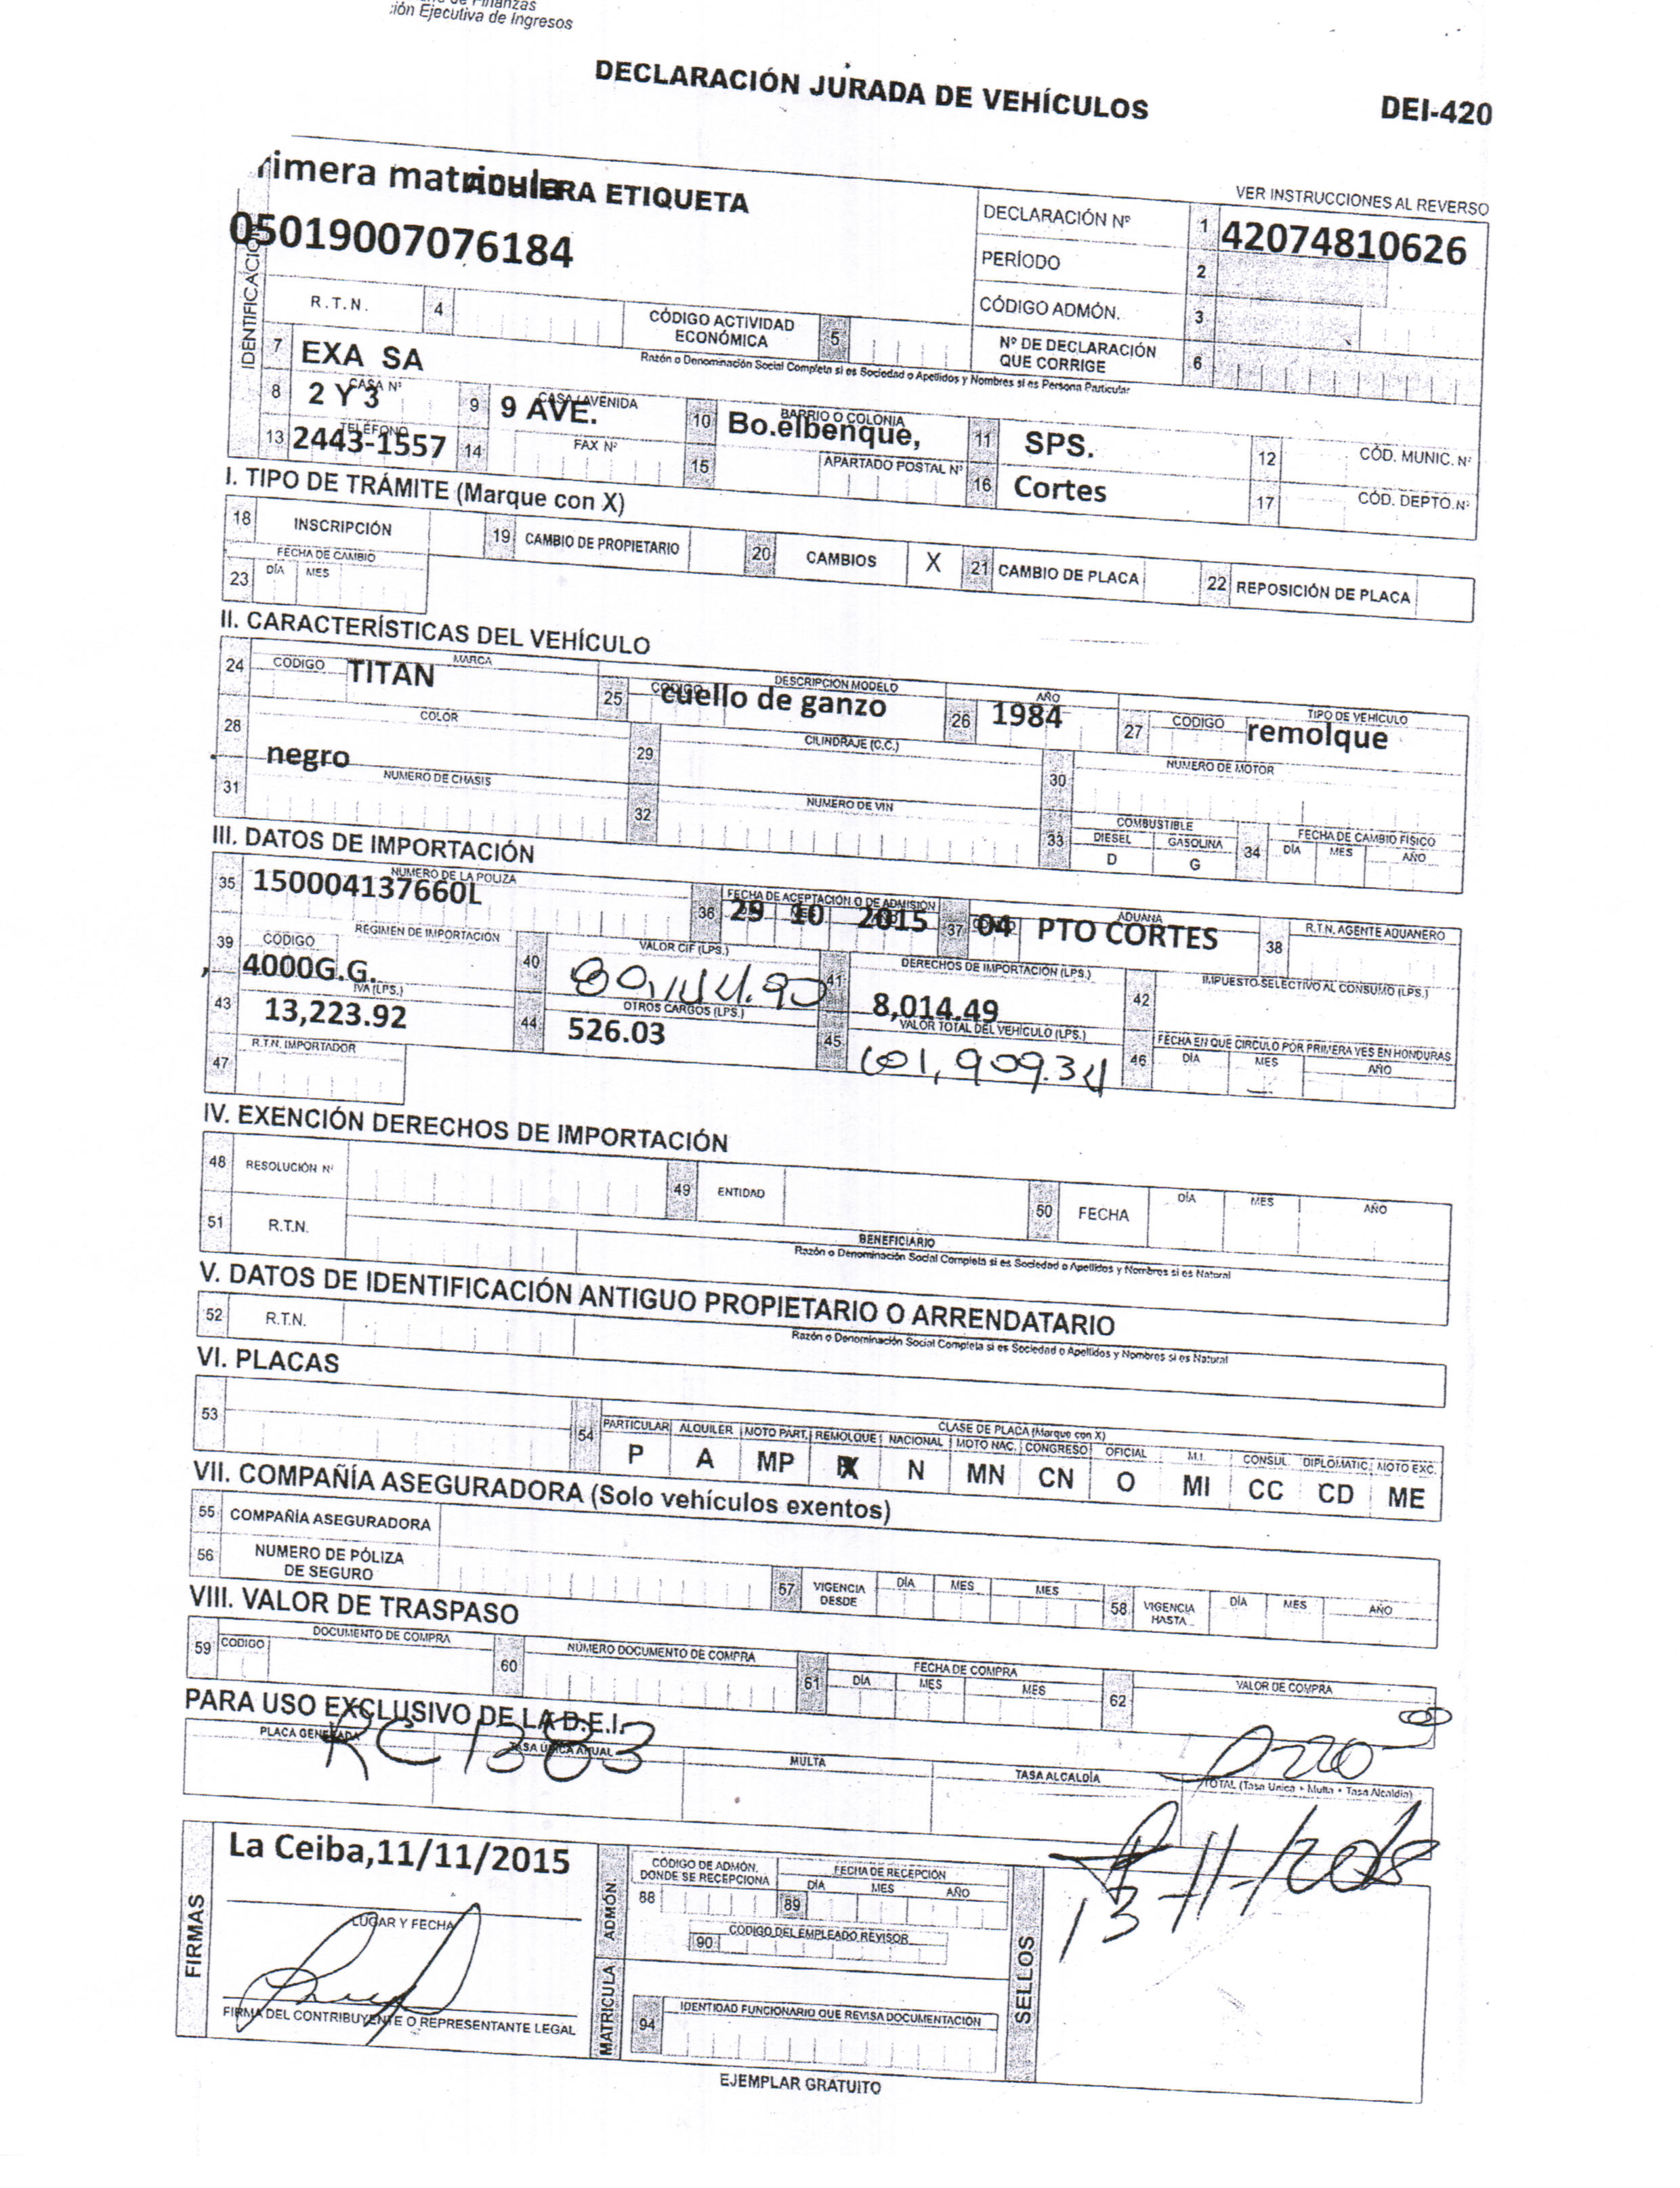 de Finanzas
ión Ejecutiva de Ingresos
DECLARACIÓN JURADA DE VEHÍCULOS DEI-420
VER INSTRUCCIONES AL REVERSO
rimera matricula ADHIERA ETIQUETA
05019007076184
DECLARACIÓN Nº 1 42074810626
PERÍODO 2
CÓDIGO ADMÓN. 3
IDENTIFICACIÓN
R.T.N. 4 CÓDIGO ACTIVIDAD ECONÓMICA 5 Nº DE DECLARACIÓN QUE CORRIGE 6
7 EXA SA
Razón o Denominación Social Completa si es Sociedad o Apellidos y Nombres si es Persona Particular
8 CASA Nº 2 Y 3 9 CASA/AVENIDA 9 AVE. 10 BARRIO O COLONIA Bo.elbenque, 11 SPS. 12 CÓD. MUNIC. Nº
13 TELÉFONO 2443-1557 14 FAX Nº 15 APARTADO POSTAL Nº 16 Cortes 17 CÓD. DEPTO.Nº
I. TIPO DE TRÁMITE (Marque con X)
18 INSCRIPCIÓN 19 CAMBIO DE PROPIETARIO 20 CAMBIOS X 21 CAMBIO DE PLACA 22 REPOSICIÓN DE PLACA
23 FECHA DE CAMBIO DÍA MES
II. CARACTERÍSTICAS DEL VEHÍCULO
24 CODIGO MARCA TITAN 25 CODIGO DESCRIPCION MODELO cuello de ganzo 26 AÑO 1984 27 CODIGO TIPO DE VEHICULO remolque
28 COLOR negro 29 CILINDRAJE (C.C.) 30 NUMERO DE MOTOR
31 NUMERO DE CHASIS 32 NUMERO DE VIN 33 COMBUSTIBLE DIESEL D GASOLINA G 34 FECHA DE CAMBIO FÍSICO DÍA MES AÑO
III. DATOS DE IMPORTACIÓN
35 NUMERO DE LA POLIZA 150004137660L 36 FECHA DE ACEPTACIÓN O DE ADMISIÓN 29 10 2015 37 04 ADUANA PTO CORTES 38 R.T.N. AGENTE ADUANERO
39 CÓDIGO RÉGIMEN DE IMPORTACIÓN 4000G.G. 40 VALOR CIF (LPS.) 80,144.90 41 DERECHOS DE IMPORTACIÓN (LPS.) 8,014.49 42 IMPUESTO SELECTIVO AL CONSUMO (LPS.)
43 IVA (LPS.) 13,223.92 44 OTROS CARGOS (LPS.) 526.03 45 VALOR TOTAL DEL VEHÍCULO (LPS.) 101,909.34 46 FECHA EN QUE CIRCULÓ POR PRIMERA VES EN HONDURAS DÍA MES AÑO
47 R.T.N. IMPORTADOR
IV. EXENCIÓN DERECHOS DE IMPORTACIÓN
48 RESOLUCIÓN Nº 49 ENTIDAD 50 FECHA DÍA MES AÑO
51 R.T.N. BENEFICIARIO
Razón o Denominación Social Completa si es Sociedad o Apellidos y Nombres si es Natural
V. DATOS DE IDENTIFICACIÓN ANTIGUO PROPIETARIO O ARRENDATARIO
52 R.T.N. Razón o Denominación Social Completa si es Sociedad o Apellidos y Nombres si es Natural
VI. PLACAS
53 54 CLASE DE PLACA (Marque con X)
PARTICULAR ALQUILER MOTO PART. REMOLQUE NACIONAL MOTO NAC. CONGRESO OFICIAL M.I. CONSUL DIPLOMATIC. MOTO EXC.
P A MP X N MN CN O MI CC CD ME
VII. COMPAÑÍA ASEGURADORA (Solo vehículos exentos)
55 COMPAÑÍA ASEGURADORA
56 NUMERO DE PÓLIZA DE SEGURO 57 VIGENCIA DESDE DÍA MES MES 58 VIGENCIA HASTA DÍA MES AÑO
VIII. VALOR DE TRASPASO
59 CODIGO DOCUMENTO DE COMPRA 60 NÚMERO DOCUMENTO DE COMPRA 61 FECHA DE COMPRA DÍA MES MES 62 VALOR DE COMPRA
PARA USO EXCLUSIVO DE LA D.E.I.
PLACA GENERADA RC1383 TASA ÚNICA ANUAL MULTA TASA ALCALDÍA TOTAL (Tasa Única + Multa + Tasa Alcaldía)
FIRMAS
La Ceiba,11/11/2015
LUGAR Y FECHA
FIRMA DEL CONTRIBUYENTE O REPRESENTANTE LEGAL
MATRICULA ADMÓN.
CÓDIGO DE ADMÓN. DONDE SE RECEPCIONA 88 FECHA DE RECEPCIÓN DÍA MES AÑO 89
CODIGO DEL EMPLEADO REVISOR 90
94 IDENTIDAD FUNCIONARIO QUE REVISA DOCUMENTACIÓN
SELLOS
EJEMPLAR GRATUITO